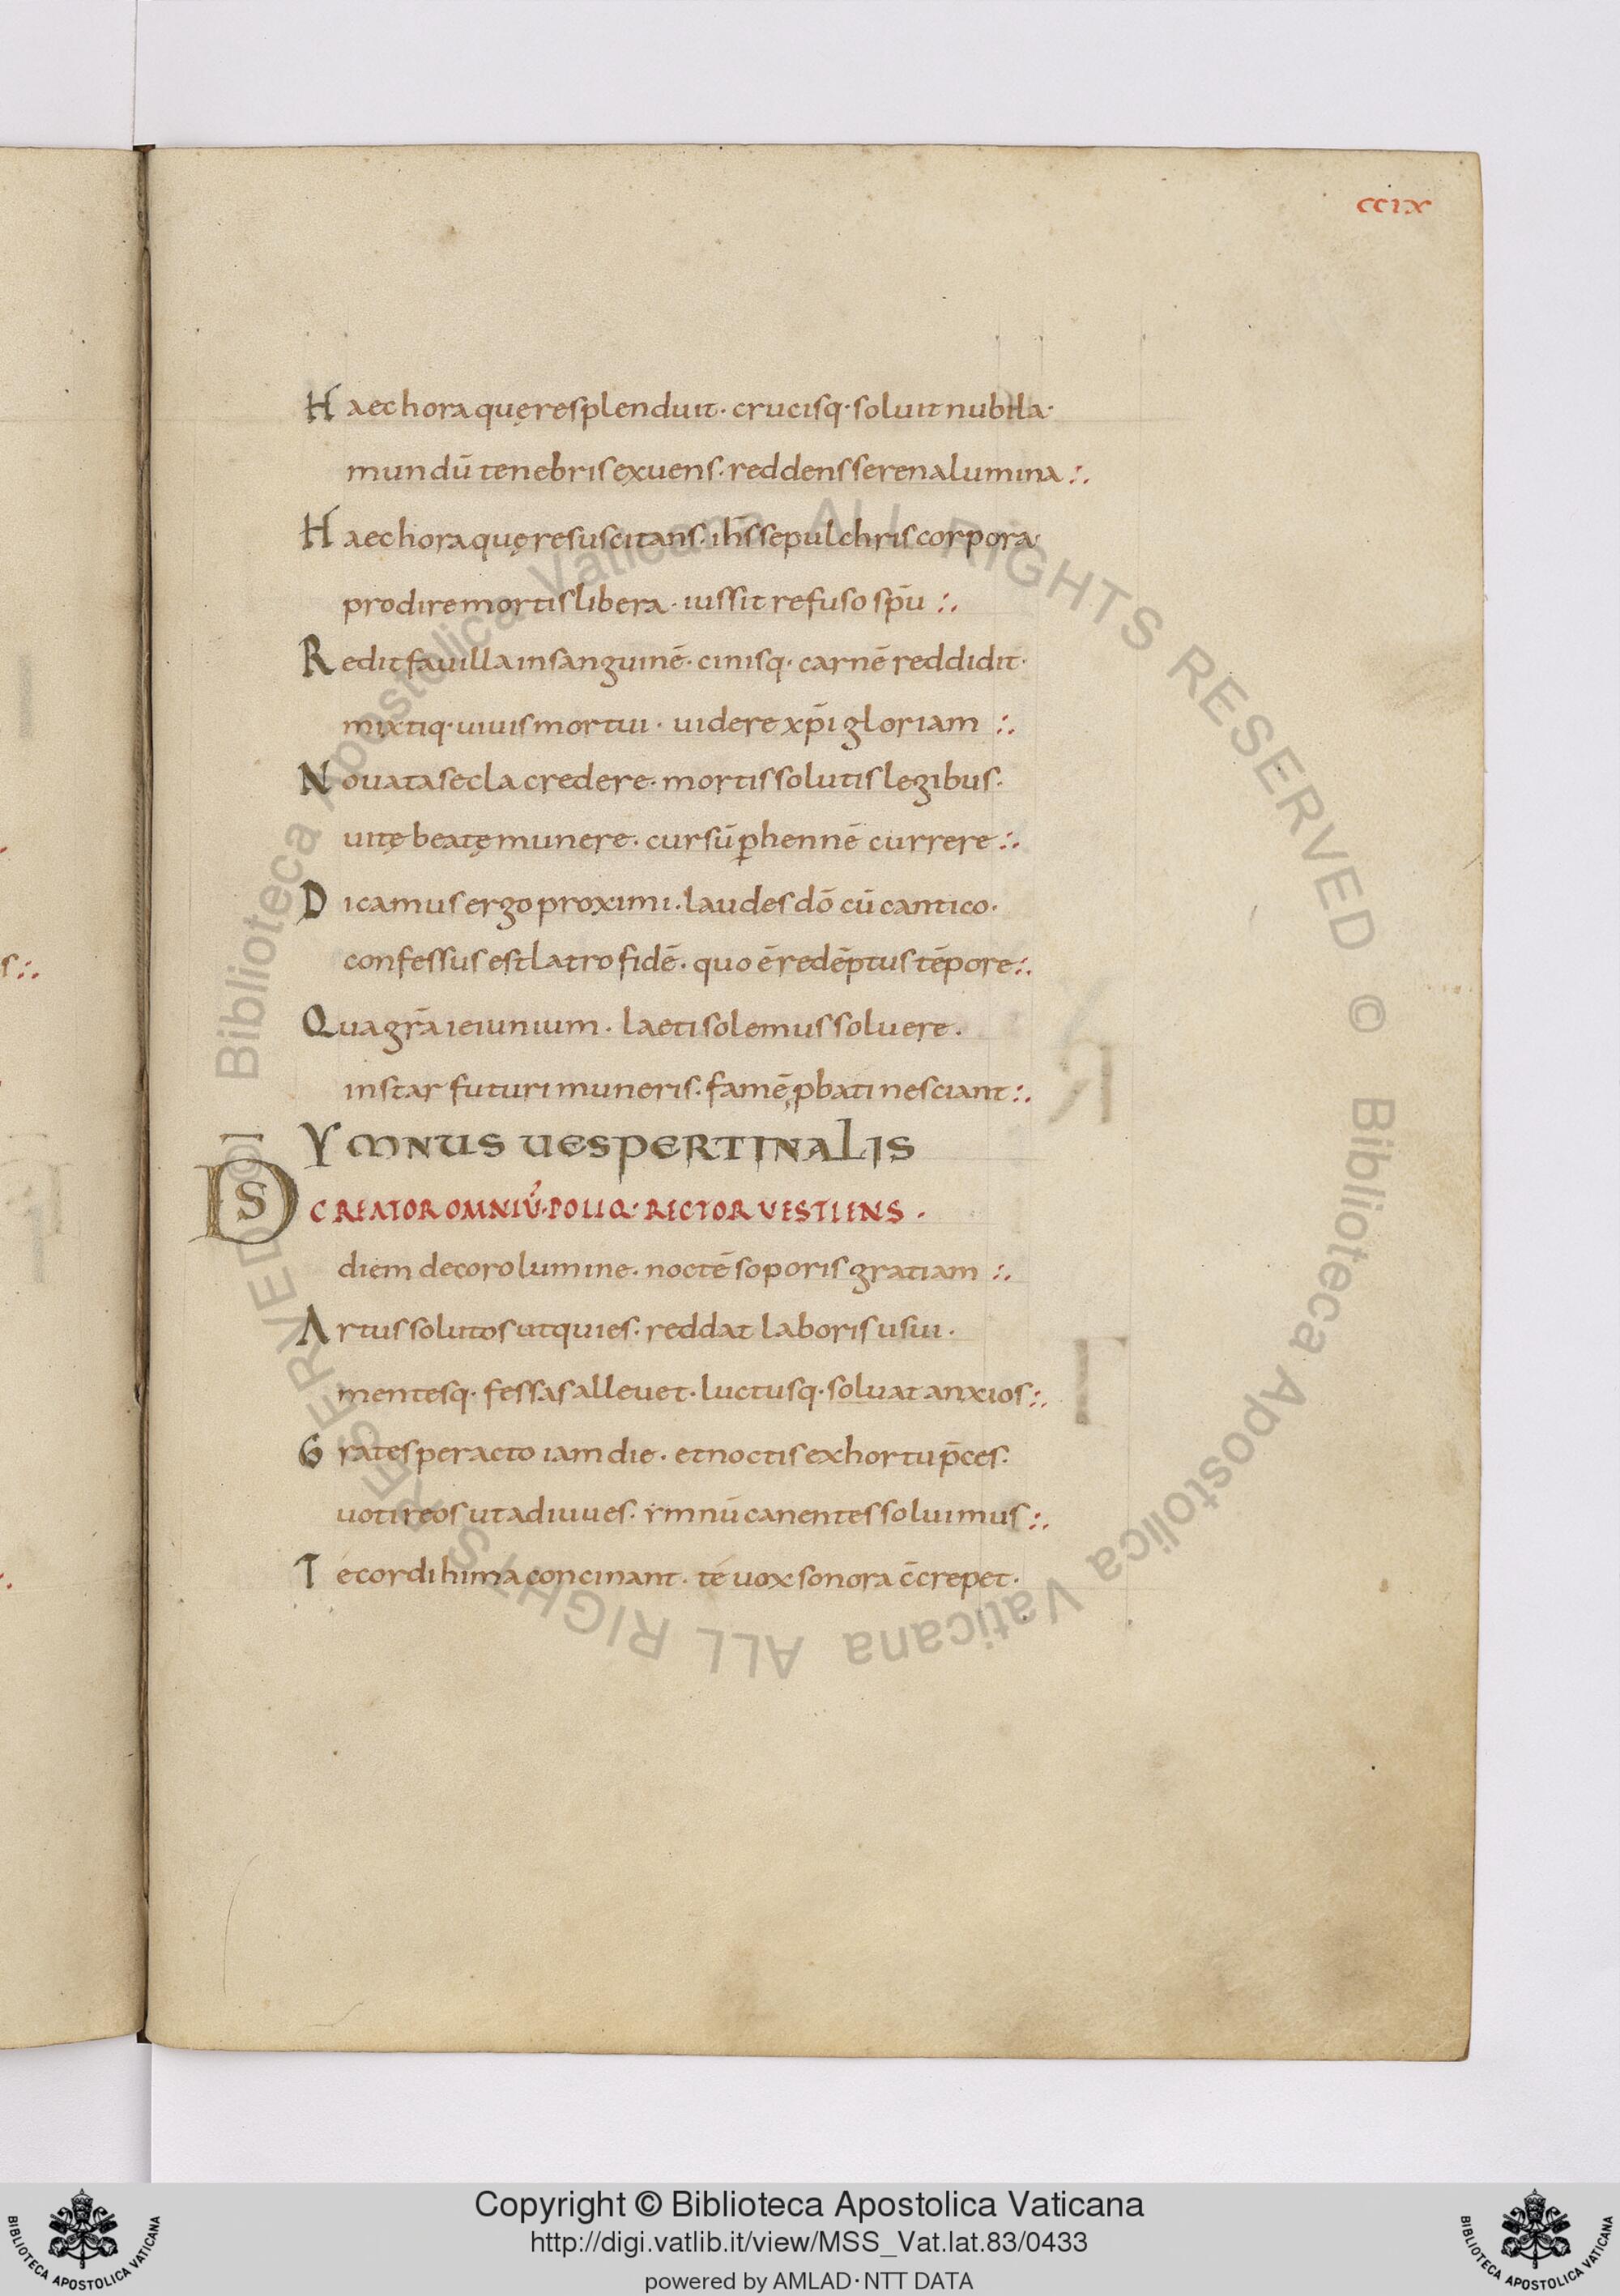 ccix
Haec hora quę resplenduit · crucisq· soluit nubila·
mundū tenebris exuens · reddens serena lumina :·
Haec hora quę resuscitans · ih̄s sepulchris corpora·
prodire mortis libera · iussit refuso sp̄u :·
Redit fauilla in sanguinē · cinisq· carnē reddidit·
mixtiq· uiuis mortui · uidere xp̄i gloriam :·
Nouata secla credere · mortis solutis legibus·
uitę beatę munere · cursū p̱hennē currere :·
Dicamus ergo proximi · laudes dō cū cantico·
confessus est latro fidē · quo ē redēptus tēpore :·
Qua gr̄a ieiunium · laeti solemus soluere ·
instar futuri muneris · famē pbati nesciant :·
YMNUS UESPERTINALIS
D̄S CREATOR OMNIŪ · POLIQ· RECTOR VESTIENS ·
diem decoro lumine · noctē soporis gratiam :·
Artus solutos ut quies · reddat laboris usui ·
mentesq· fessas alleuet · luctusq· soluat anxios :·
Grates peracto iam die · et noctis exhortu p̄ces·
uoti reos ut adiuues · ymnū canentes soluimus :·
Te cordi hima concinant · te uox sonora c̄crepet·
Biblioteca Apostolica Vaticana ALL RIGHTS RESERVED © Biblioteca Apostolica Vaticana ALL RIGHTS RESERVED ©
Copyright © Biblioteca Apostolica Vaticana
http://digi.vatlib.it/view/MSS_Vat.lat.83/0433
powered by AMLAD · NTT DATA
BIBLIOTECA APOSTOLICA VATICANA
BIBLIOTECA APOSTOLICA VATICANA